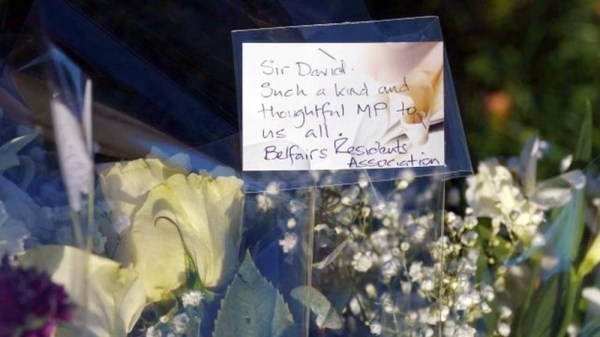 Sir David.
Such a kind and
thoughtful MP to
us all.
Belfairs Residents
Association